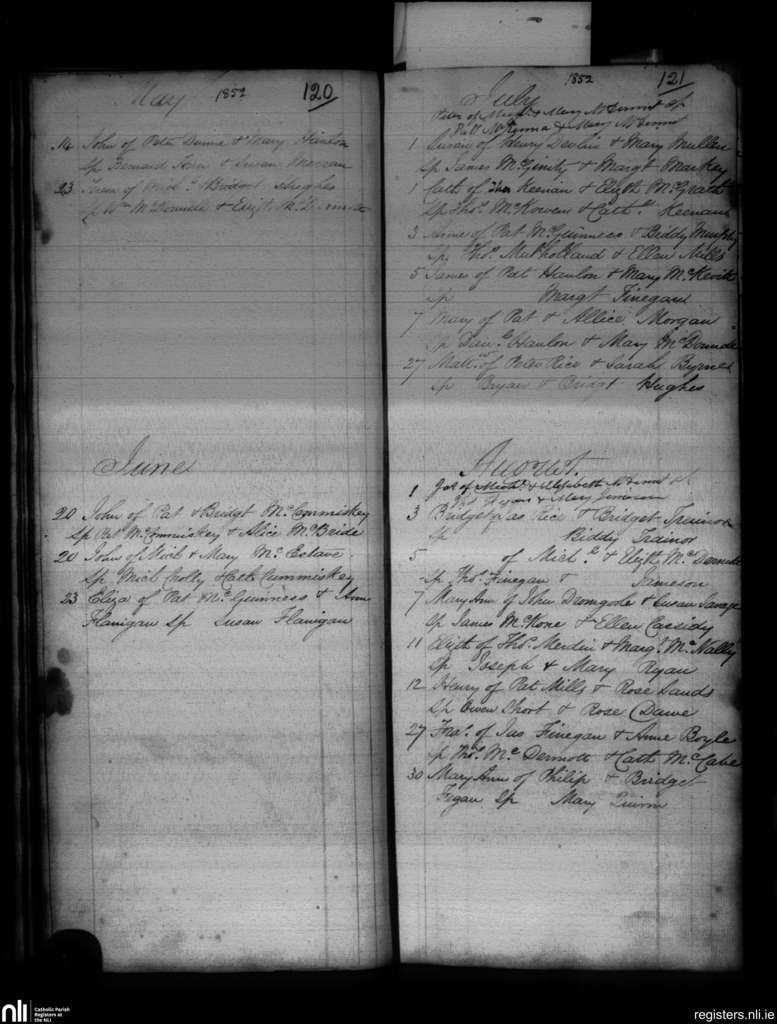 May 1852 120
14 John of Peter Dunne & Mary Hanlon
Sp Bernard & Susan
23 of Mich.l & Bridget Hughes
Sp Wm McDonnell & Elizth McDermott
June
20 John of Pat & Bridgt McCommiskey
Sp Pat McCommiskey & Alice McBride
20 John of Mich & Mary McEntave
Sp Mich Cholly & Cath Cummiskey
23 Eliza of Pat McGuinness & Ann
Flanigan Sp Susan Flanigan
July 1852 121
Peter of Michl & Mary McDermot Sp
Patt McKenna & Mary McDermot
1 Susan of Henry Devlin & Mary Mullen
Sp James McGinity & Margt Markey
1 Cath of Thos Keenan & Elizth McGrath
Sp Thos. McKowen & Cath. Keenan
3 Anne of Pat McGuinness & Biddy Murphy
Sp Thos. Mulholland & Ellen Mills
5 James of Pat Hanlon & Mary McKevitt
Sp Margt Finegan
7 Mary of Pat & Allice Morgan
Sp Hanlon & Mary McDonnell
27 Mattw of Peter Rice & Sarah Byrne
Sp Bryan & Bridgt Hughes
August.
1 Jas of Michl & Elisibeth McDermot Sp
& Mary Jameson
3 Bridget of Jas Rice & Bridget Trainor
Sp Biddy Trainor
5 of Michl & Elizth McDermott
Sp Thos. Finegan & Jameson
7 Mary Ann of John Dromgole & Susan Savage
Sp James McKone & Ellen Cassidy
11 Elizth of Thos. Merdin & Margt McNally
Sp Joseph & Mary Ryan
12 Henry of Pat Mills & Rose Sands
Sp Owen Short & Rose Dawe
27 Fras. of Jas Finegan & Anne Boyle
Sp Thos. McDermott & Cath McCabe
30 Mary Ann of Philip & Bridget
Fegan Sp Mary Quinn
nli Catholic Parish
Registers at
the NLI
registers.nli.ie